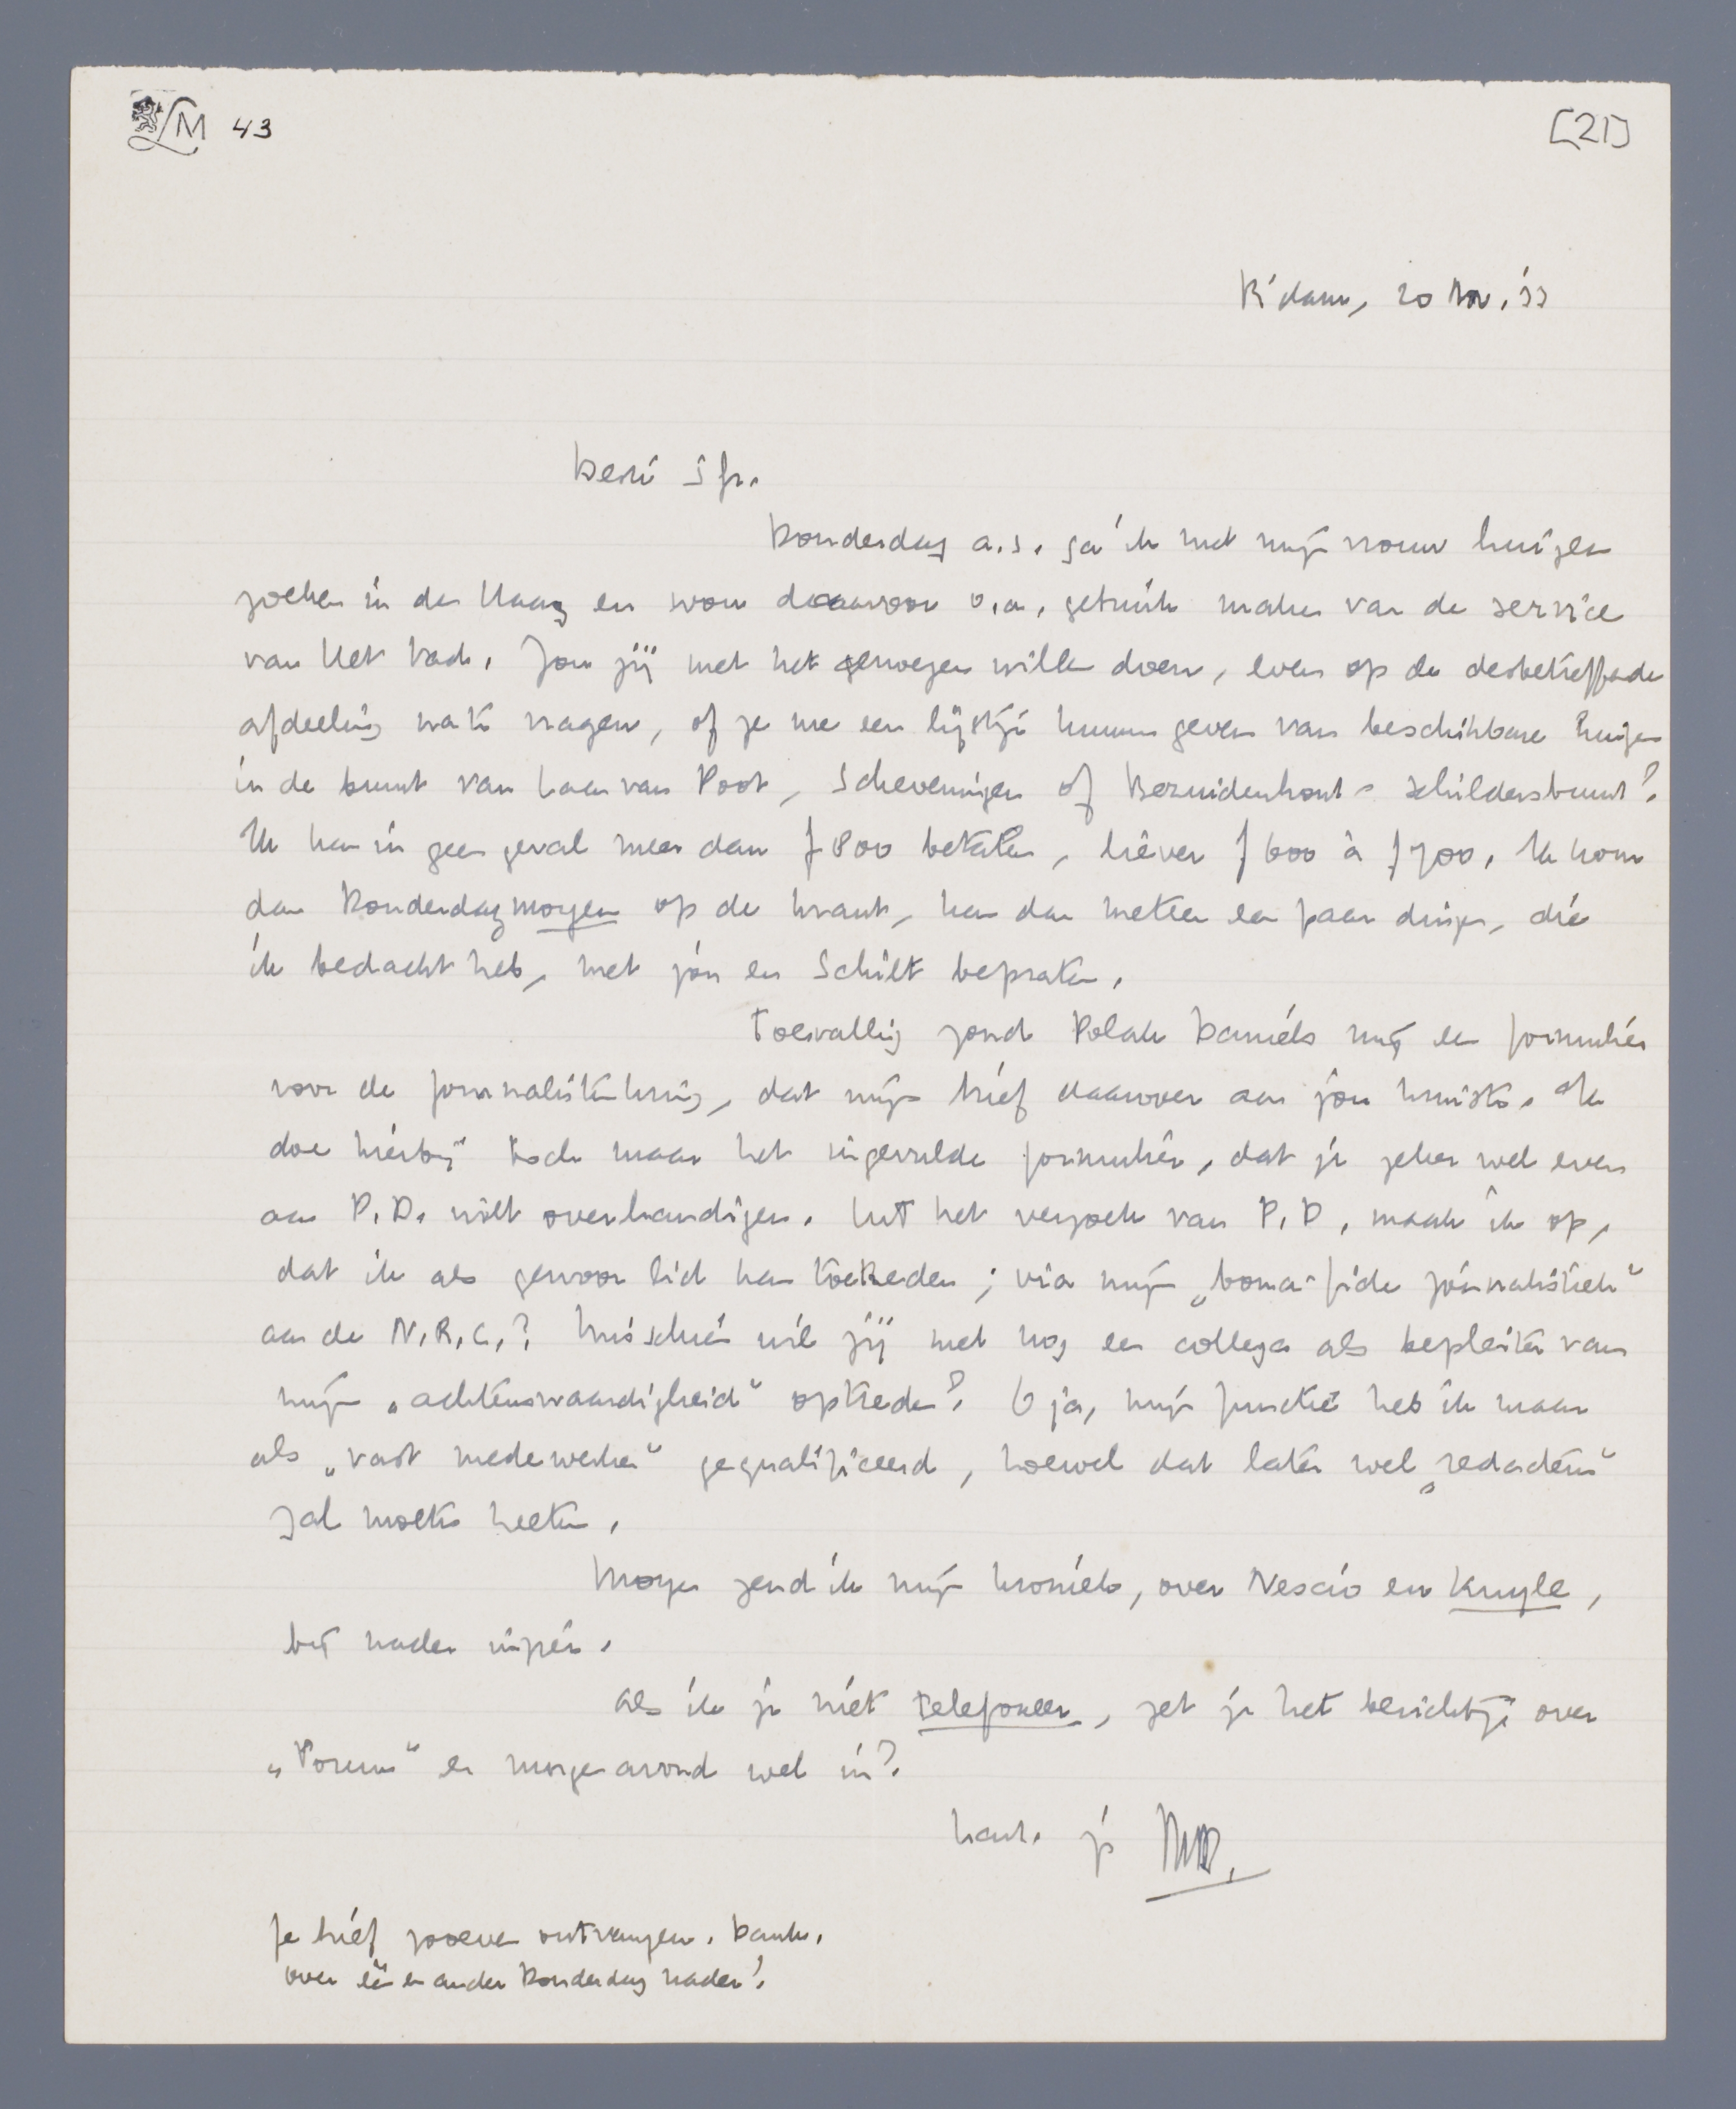 LM 43
[21]
R'dam, 20 Nov. '33
Beste Sfr.
Donderdag a.s. ga ik met mijn vrouw huizen
zoeken in den Haag en wou daarvoor o.a. gebruik maken van de service
van Het Vad. Zou jij met het genoegen willen doen, even op de desbetreffende
afdeeling na te vragen, of ze me een lijstje kunnen geven van beschikbare huizen
in de buurt van Laan van Poot, Scheveningen of Bezuidenhout - Schildersbuurt?
Ik kan in geen geval meer dan f 800 betalen, liever f 600 à f 700. Ik kom
dan Donderdagmorgen op de krant, kan dan meteen een paar dingen, die
ik bedacht heb, met jou en Schilt bepraten.
Toevallig zond Polak Daniëls mij een formulier
voor de journalistenkring, dat mijn brief daarover aan jou kruiste. Ik
doe hierbij toch maar het ingevulde formulier, dat je zeker wel even
aan P.D. wilt overhandigen. Uit het verzoek van P.D. maak ik op,
dat ik als gewoon lid kan toetreden; via mijn „bona-fide journalistiek"
aan de N.R.C.? Misschien wil jij met nog een collega als bepleiter van
mijn „achtenswaardigheid" optreden? O ja, mijn functie heb ik maar
als „vast medewerker" gequalificeerd, hoewel dat later wel „redacteur"
zal moeten heeten.
Morgen zend ik mijn kroniek, over Nescio en Kuyle,
bij nader inzien.
Als ik je niet telefoneer, zet je het berichtje over
„Forum" er morgenavond wel in?
hart. je MtB.
Je brief zooeven ontvangen. Dank.
Over één en ander Donderdag nader!